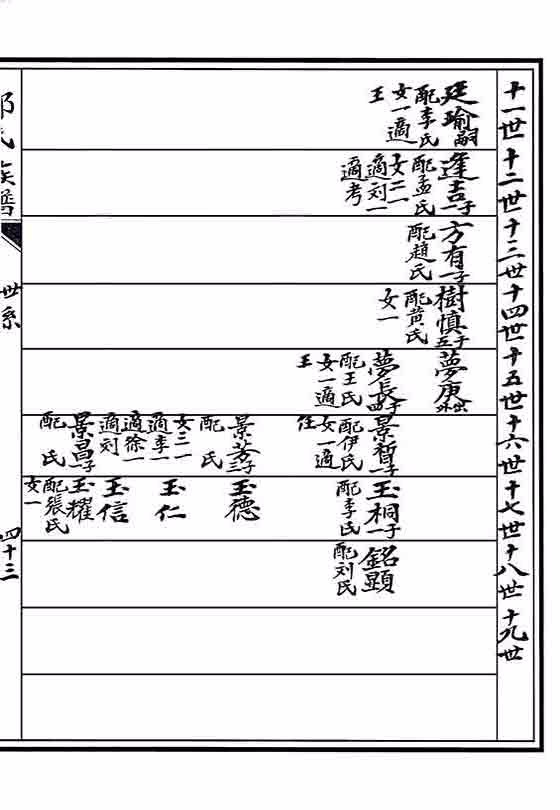 十一世
十二世
十三世
十四世
十五世
十六世
十七世
十八世
十九世
廷瑜嗣
配李氏
女一適
王
逢吉一子
配孟氏
女二一
適刘一
適考
方有一子
配趙氏
樹慎五子
配黄氏
女一
夢庚外出
夢長四子
配王氏
女一適
王
景暂一子
配伊氏
女一適
任
景芳三子
配 氏
女三一
適李一
適徐一
適刘
景昌一子
配 氏
玉桐一子
配李氏
玉德
玉仁
玉信
玉耀
配張氏
女一
銘顯
配刘氏
氏族譜
世系
四十三